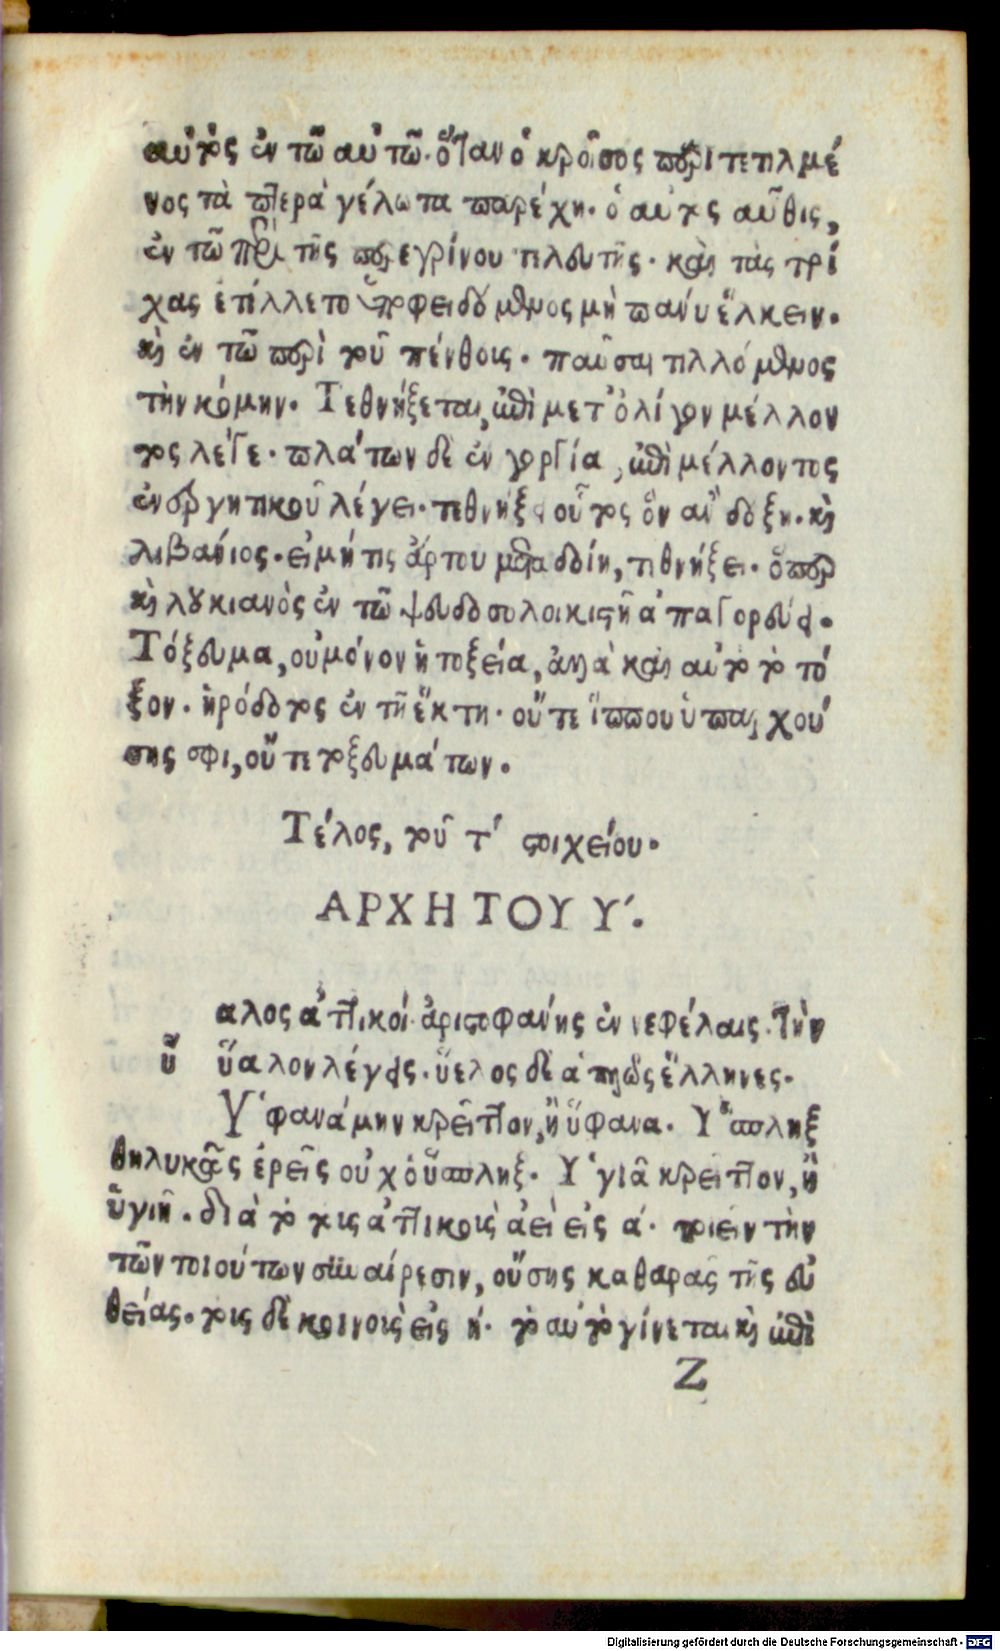 αὐτὸς ἐν τῶ αὐτῶ. ὅταν ὁ κροῖσος περιτετιλμέ
νος τὰ πτερὰ γέλωτα παρέχῃ. ὁ αὐτὸς αὖθις,
ἐν τῶ περὶ τῆς περεγρίνου τελευτῆς. καὶ τὰς τρί
χας ἐτίλλετο ὑποφειδόμενος μὴ πανὺ ἕλκειν.
καὶ ἐν τῶ περὶ τοῦ πένθους. παῦσαι τιλλόμενος
τὴν κόμην. Τεθνήξεται, ἐπὶ μετ' ὀλίγον μέλλον
τος λέγε. πλάτων δὲ ἐν γοργία, ἐπὶ μέλλοντος
ἐνεργητικοῦ λέγει. τεθνήξει οὗτος ὃν ἂν δόξῃ. καὶ
λιβανίος. εἰ μή τις ἄρτου μεταδοίη, τεθνήξει. ὅπερ
καὶ λουκιανὸς ἐν τῶ ψευδοσολοικιστῆ ἀπαγορεύει.
Τόξευμα, οὐ μόνον ἡ τοξεία, ἀλλὰ καὶ αὐτὸ τὸ τό
ξον. ἡρόδοτος ἐν τῆ ἕκτη. οὔτε ἵππου ὑπαρχού
σης σφι, οὔτε τοξευμάτων.
Τέλος, τοῦ τ´ στοιχείου.
ΑΡΧΗ ΤΟΥ Υ´.
αλος ἀττικοί. ἀριστοφανής ἐν νεφέλαις. τὴν
ὕ ὕαλον λέγεις. ὕελος δὲ ἁπλῶς ἕλληνες.
Υ῾φανάμην κρεῖττον, ἢ ὕφανα. Υ῞σπληξ
θηλυκῶς ἐρεῖς οὐχ ὁ ὕσπληξ. Υ῾γιᾶ κρεῖττον, ἢ
ὑγιῆ. διὰ τὸ τοὺς ἀττικοὺς ἀεὶ εἰς ά. ποιεῖν τὴν
τῶν τοιούτων συναίρεσιν, οὔσης καθαρᾶς τῆς εὐ
θείας. τοὺς δὲ κοινοὺς εἰς ή. τὸ αὐτὸ γίνεται καὶ ἐπὶ
Ζ
Digitalisierung gefördert durch die Deutsche Forschungsgemeinschaft - DFG